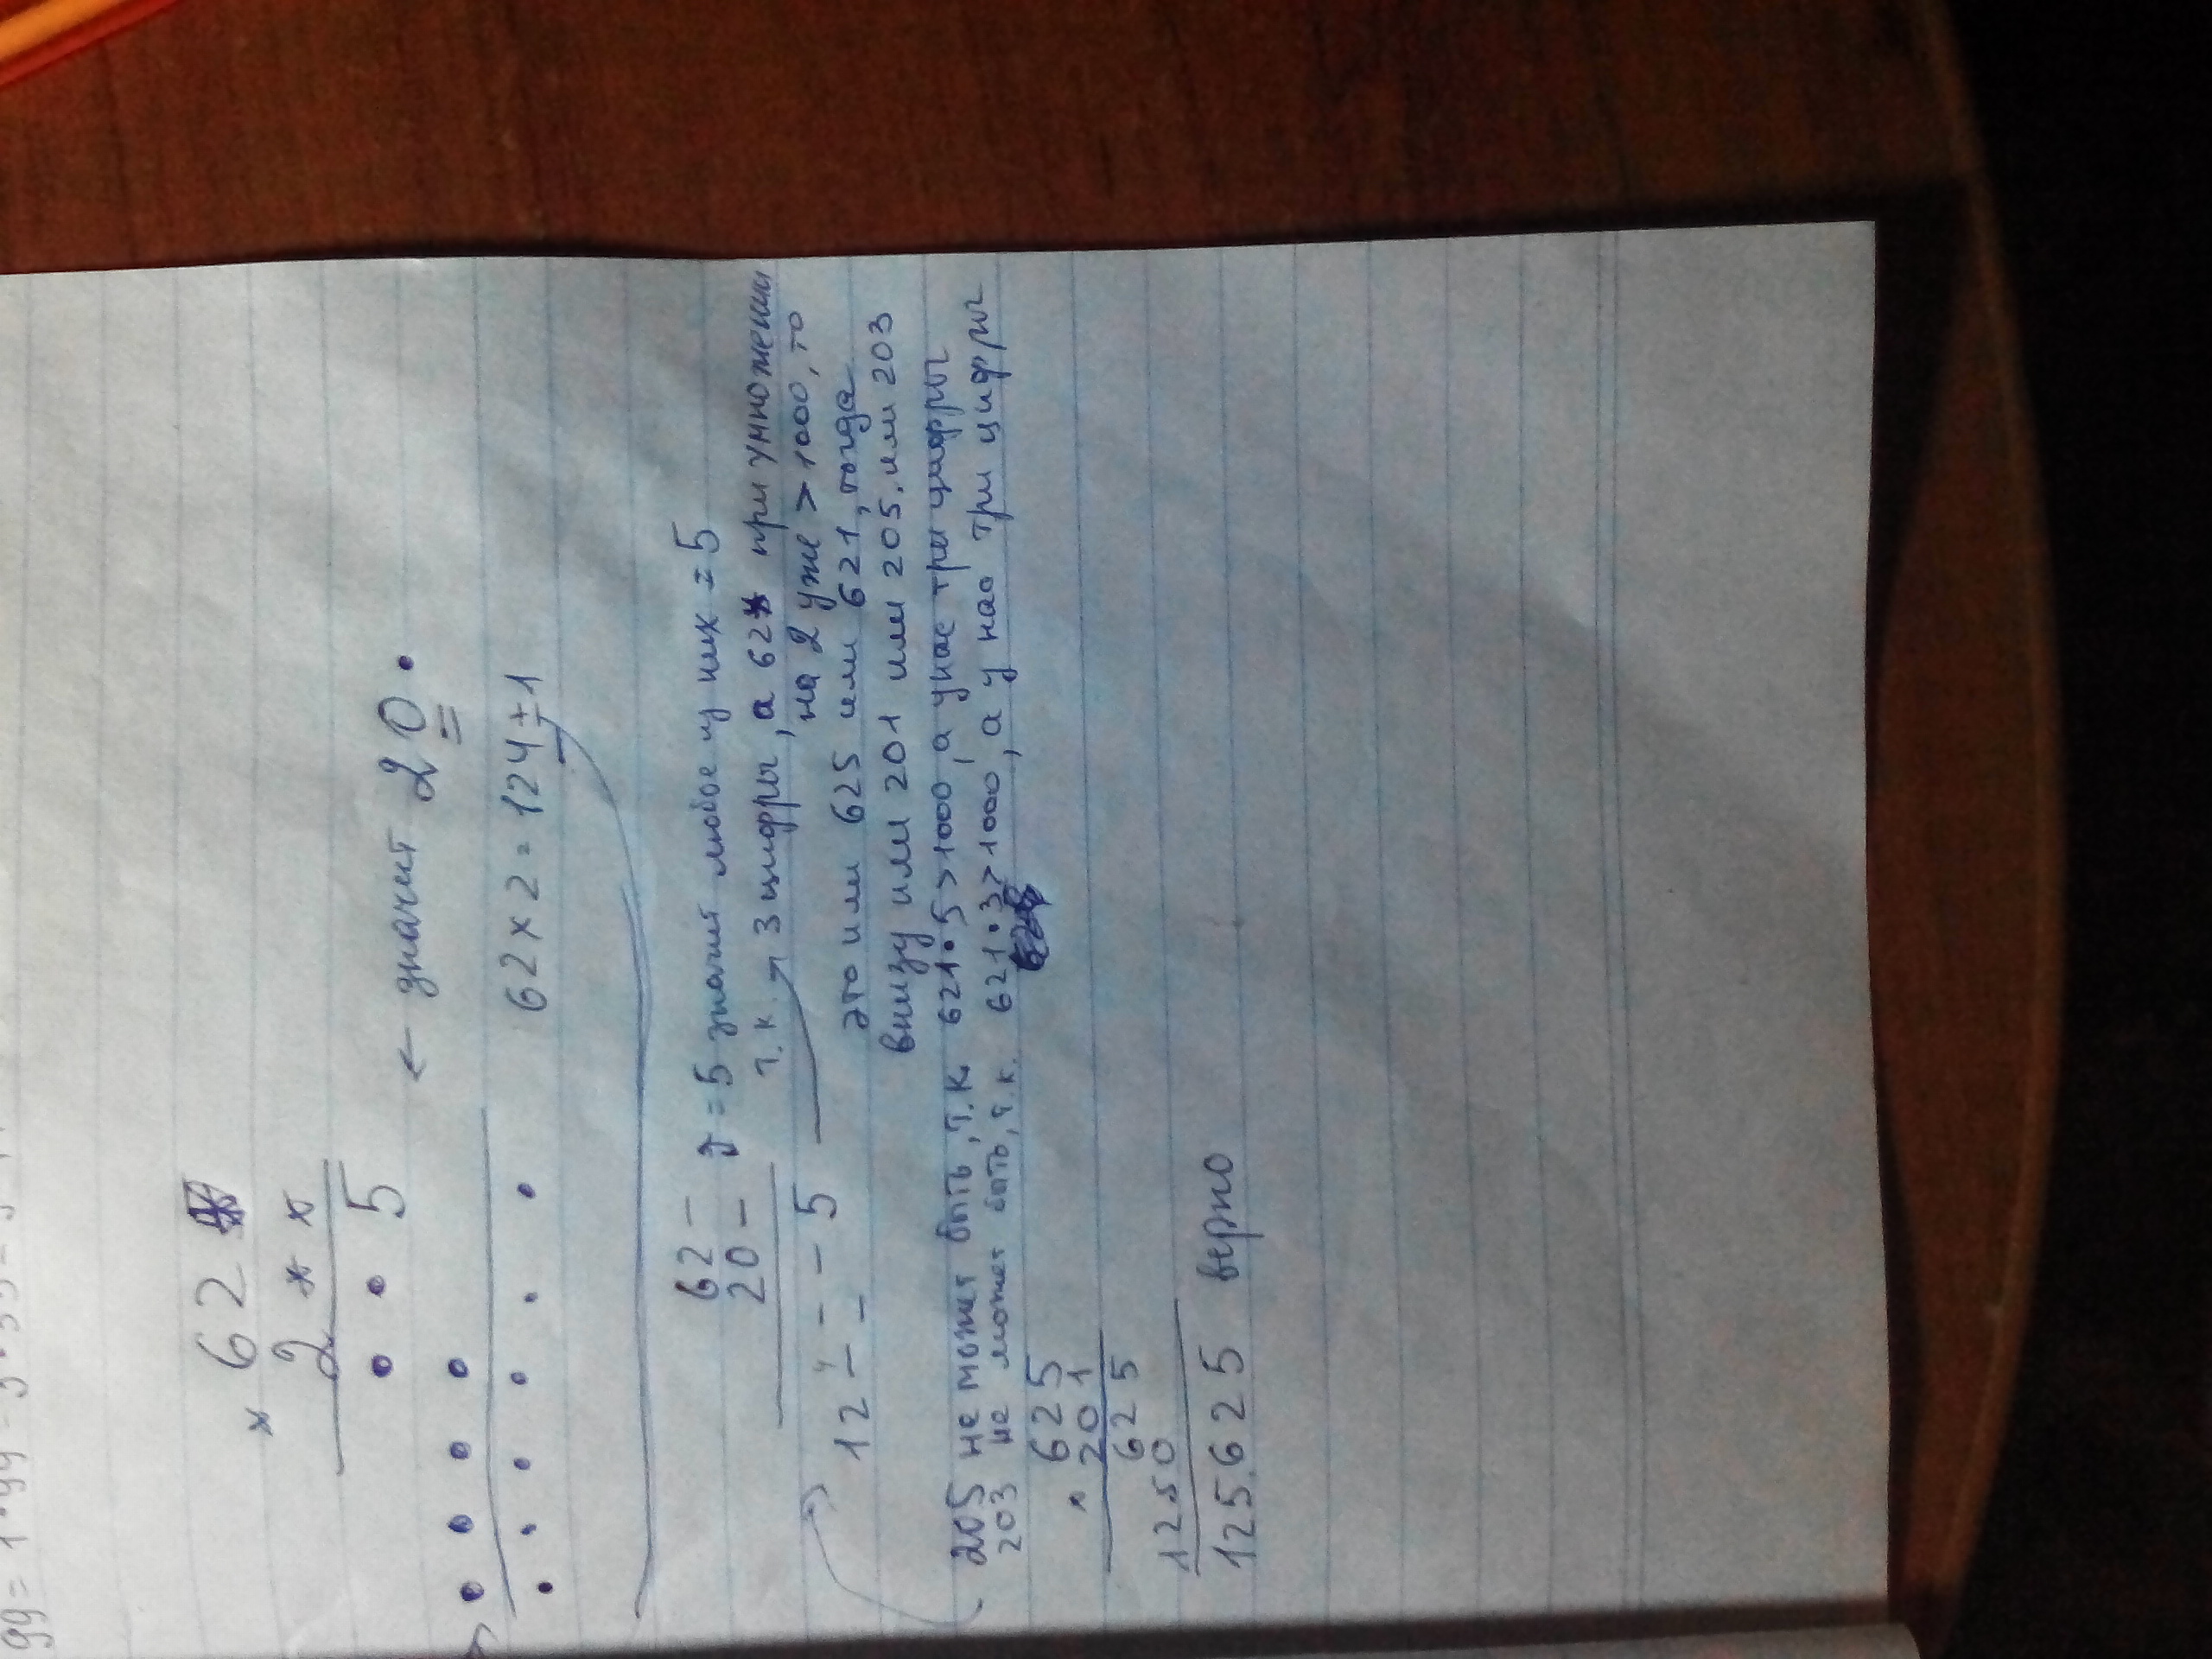 99 = 1 · 99 = 3 · 33 =
× 62
2 * *
• • 5
← значит 20 •
• • • •
62 × 2 = 124 ± 1
• • • • • •
62 –
20 –
= 5 значит любое из них = 5
т.к. → 3 цифры, а 62* при умножении
на 2 уже > 1000, то
– – 5
12 – –
это или 625 или 621, тогда
внизу или 201 или 205, или 203
205 не может быть, т.к 621 • 5 > 1000, а у нас три цифры
203 не может быть, т.к. 621 • 3 > 1000, а у нас три цифры
× 625
201
625
1250
125.625 верно